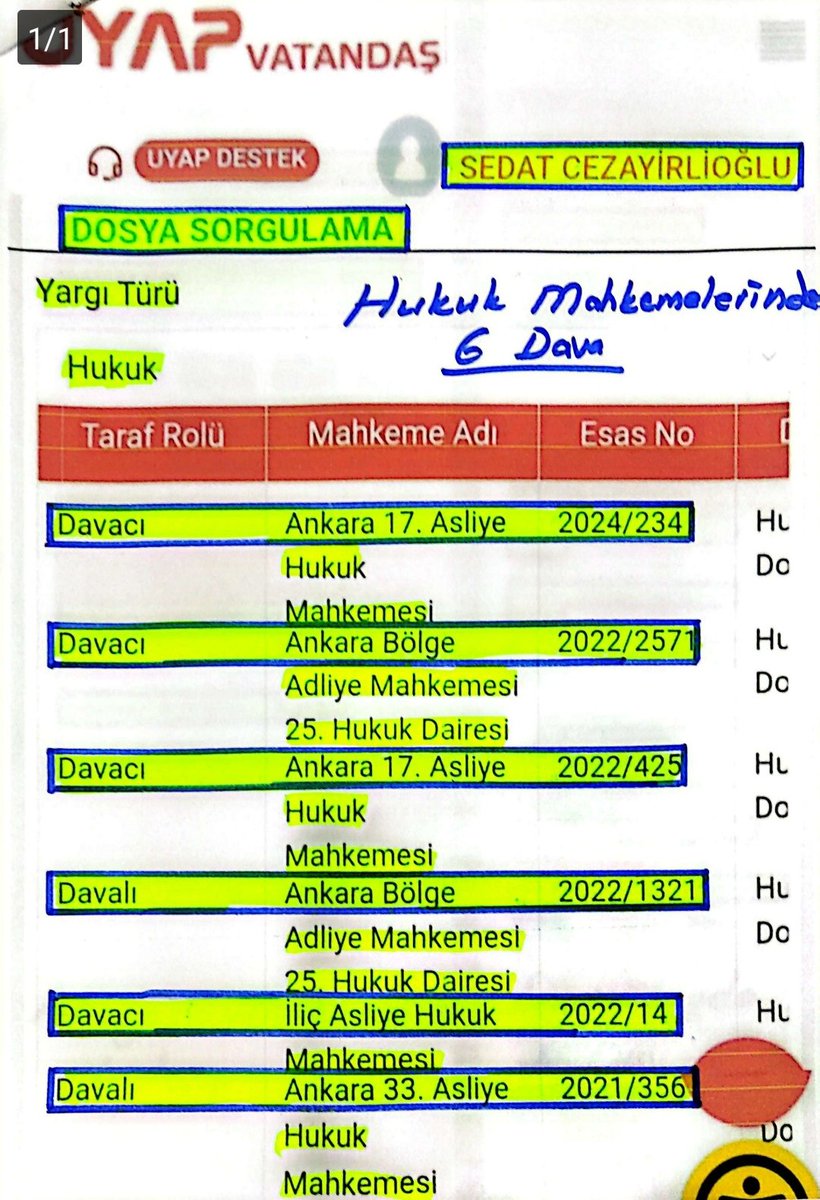 1/1
UYAP VATANDAŞ
UYAP DESTEK
SEDAT CEZAYİRLİOĞLU
DOSYA SORGULAMA
Yargı Türü
Hukuk Mahkemelerinde
6 Dava
Hukuk
Taraf Rolü Mahkeme Adı Esas No D
Davacı Ankara 17. Asliye 2024/234 Hu
Hukuk Do
Mahkemesi
Davacı Ankara Bölge 2022/2571 Hu
Adliye Mahkemesi Do
25. Hukuk Dairesi
Davacı Ankara 17. Asliye 2022/425 Hu
Hukuk Do
Mahkemesi
Davalı Ankara Bölge 2022/1321 Hu
Adliye Mahkemesi Do
25. Hukuk Dairesi
Davacı İliç Asliye Hukuk 2022/14 Hu
Mahkemesi
Davalı Ankara 33. Asliye 2021/356
Hukuk Do
Mahkemesi